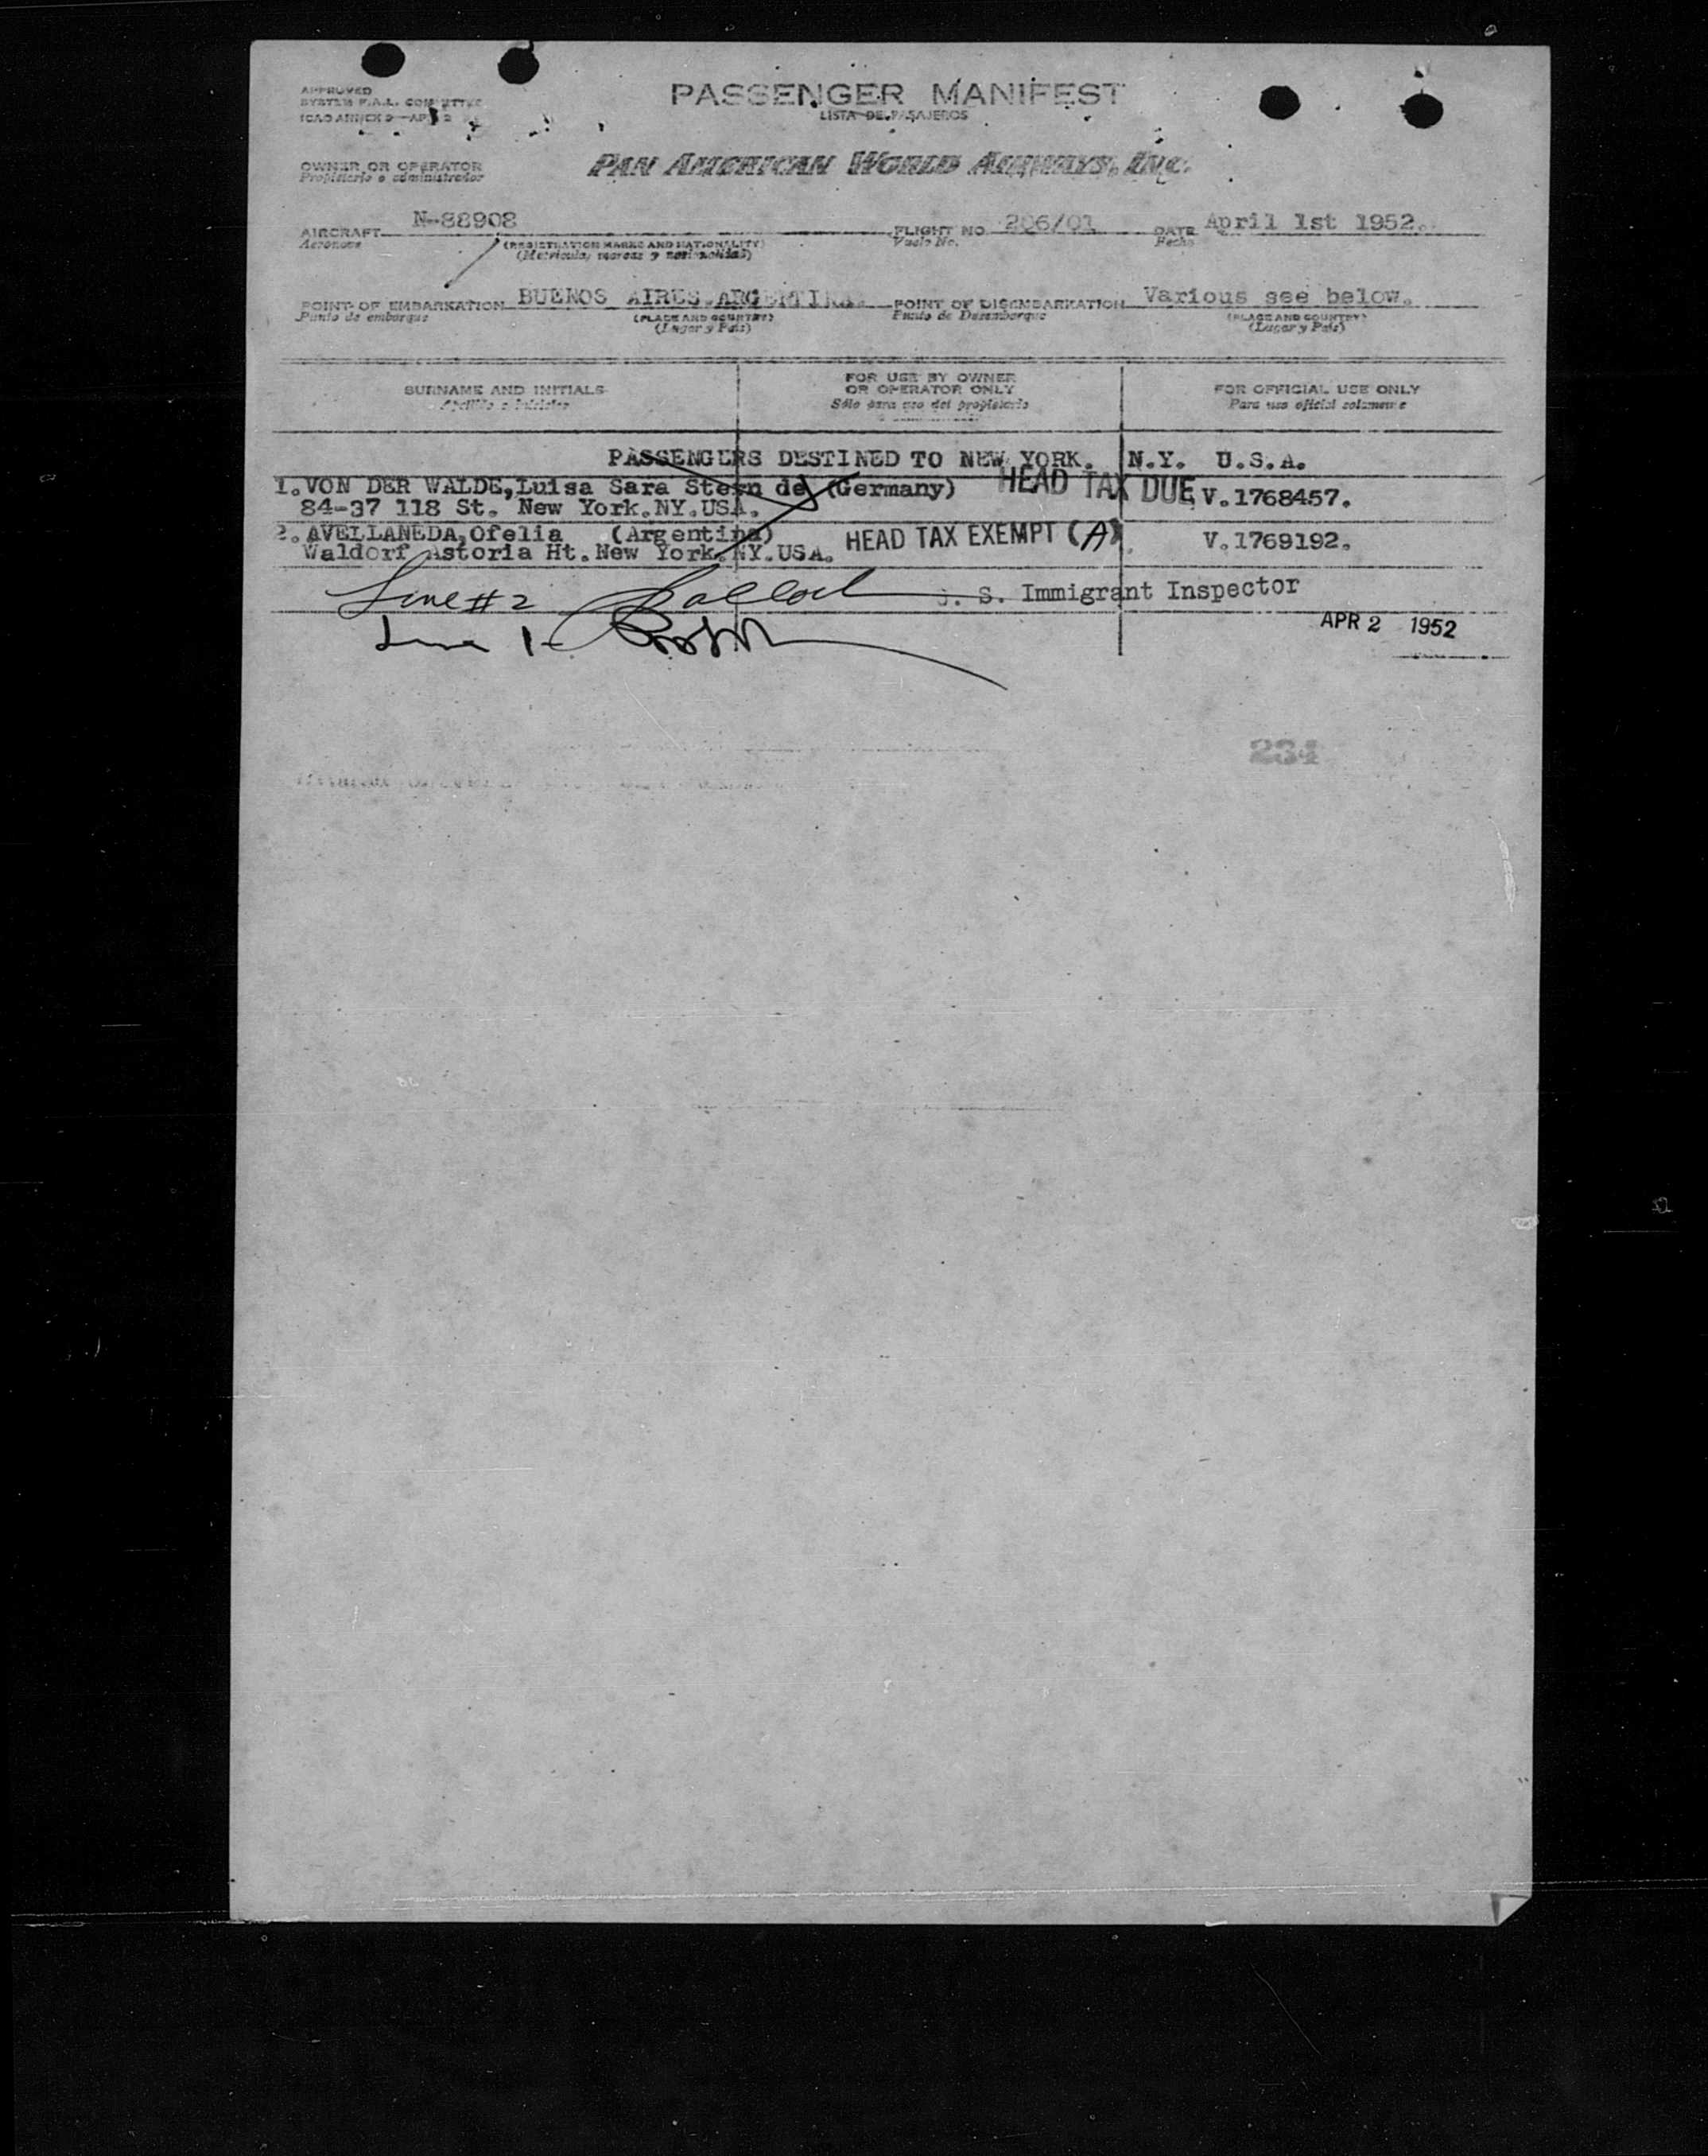 APPROVED
SYSTEM F.A.L. COMMITTEE
ICAO ANNEX 9
PASSENGER MANIFEST
LISTA DE PASAJEROS
OWNER OR OPERATOR
Propietario o administrador
PAN AMERICAN WORLD AIRWAYS, INC.
AIRCRAFT N-88908 FLIGHT NO. 206/01 DATE April 1st 1952.
Aeronave (REGISTRATION MARKS AND NATIONALITY) Vuelo No. Fecha
(Matricula, marcas y nacionalidad)
POINT OF EMBARKATION BUENOS AIRES.ARGENTINA. POINT OF DISEMBARKATION Various see below.
Punto de embarque (PLACE AND COUNTRY) Punto de Desembarque (PLACE AND COUNTRY)
(Lugar y País) (Lugar y País)
SURNAME AND INITIALS FOR USE BY OWNER OR OPERATOR ONLY FOR OFFICIAL USE ONLY
Apellido e iniciales Sólo para uso del propietario Para uso oficial solamente
PASSENGERS DESTINED TO NEW YORK. N.Y. U.S.A.
1.VON DER WALDE,Luisa Sara Stern de (Germany) HEAD TAX DUE V.1768457.
84-37 118 St. New York.NY.USA.
2.AVELLANEDA,Ofelia (Argentina) HEAD TAX EXEMPT (A) V.1769192.
Waldorf Astoria Ht.New York.NY.USA.
Line #2 U. S. Immigrant Inspector
Line 1- APR 2 1952
234